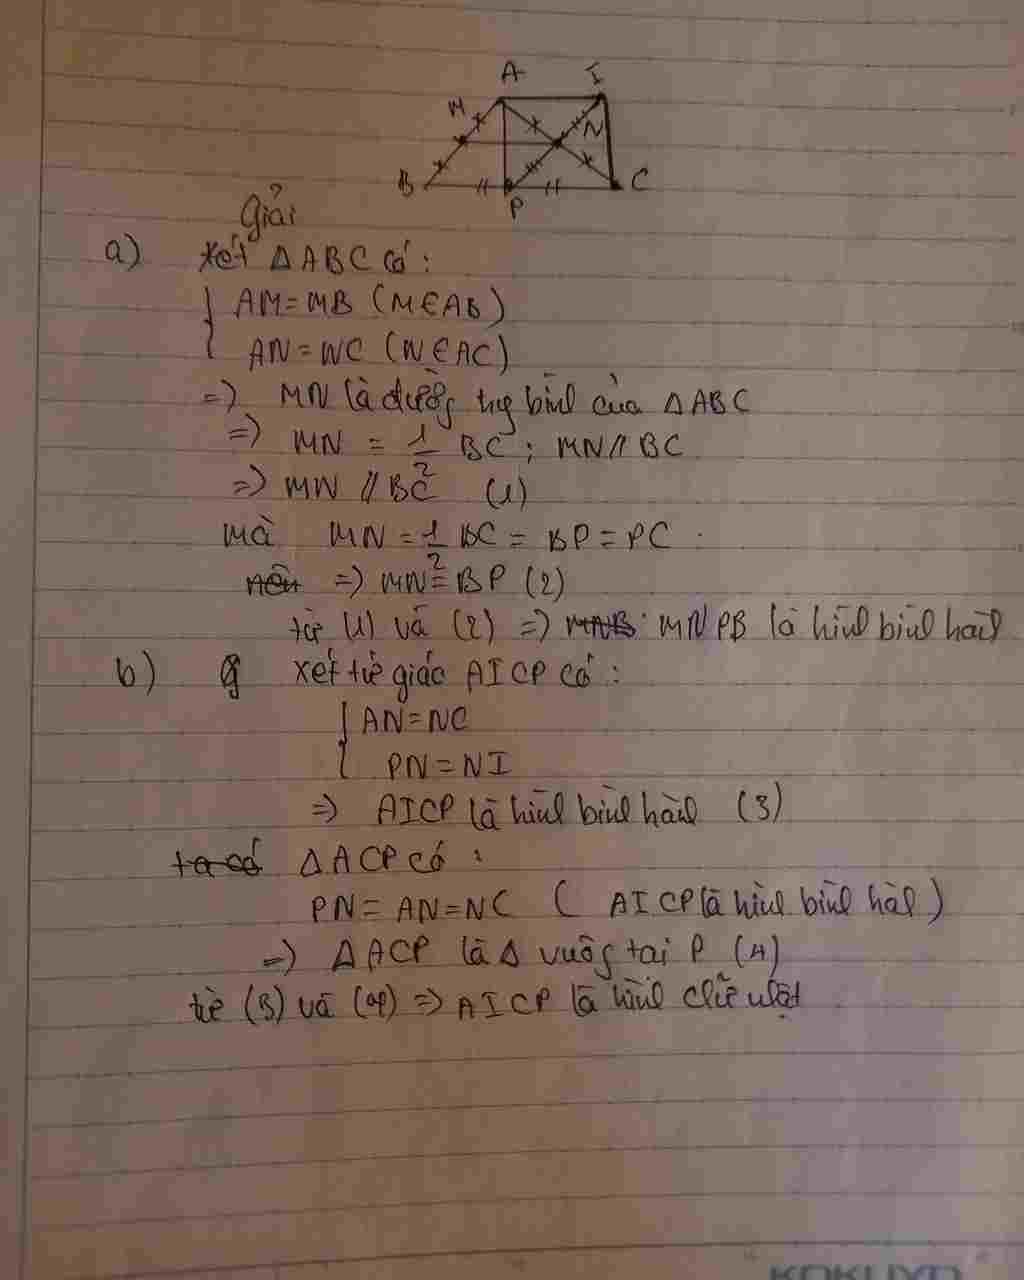 A I
M N
B P C
Giải
a) xét ΔABC có:
AM=MB (M∈AB)
AN=NC (N∈AC)
=> MN là đường tng bình của ΔABC
=> MN = 1/2 BC; MN//BC
=> MN //BC (1)
mà MN = 1/2 BC = BP = PC.
nên => MN=BP (2)
từ (1) và (2) => MNB MNPB là hình bình hành
b) xét tứ giác AICP có:
AN=NC
PN=NI
=> AICP là hình bình hành (3)
ta có ΔACP có:
PN = AN=NC ( AICP là hình bình hàh )
=> ΔACP là Δ vuông tại P (4)
từ (3) và (4) => AICP là hình chữ nhật
KOKUYO